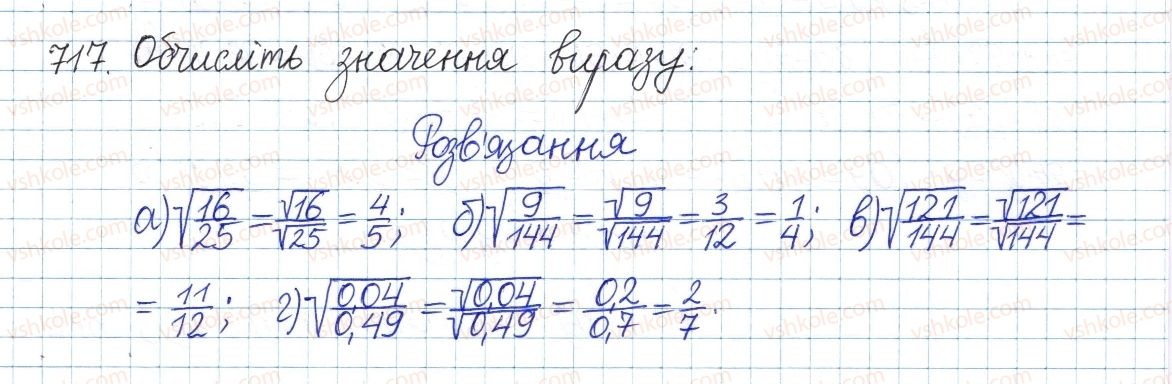 717. Обчисліть значення виразу:
Розв'язання
а) √(16/25) = √16/√25 = 4/5; б) √(9/144) = √9/√144 = 3/12 = 1/4; в) √(121/144) = √121/√144 =
= 11/12; г) √(0,04/0,49) = √0,04/√0,49 = 0,2/0,7 = 2/7.